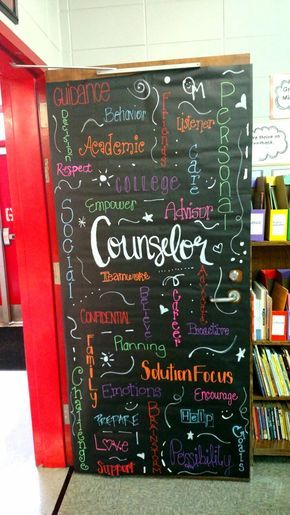 Guidance
Behavior
Listener
Personal
Academic
Care
Respect
COLLEGE
Empower
Advisor
Social
Counselor
Teamwork
Advocate
Believe
Career
CONFIDENTIAL
Proactive
Planning
FAMILY
Solution Focus
Emotions
Encourage
PREPARE
Help
Love
Support
Possibility